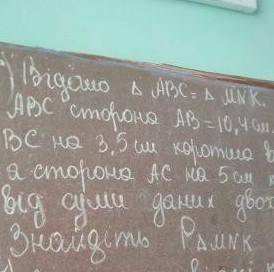 ) Відомо Δ ABC = Δ MNK.
ABC сторона AB = 10,4 см
BC на 3,5 см коротша
а сторона AC на 5 см
від суми даних двох
Знайдіть PΔMNK